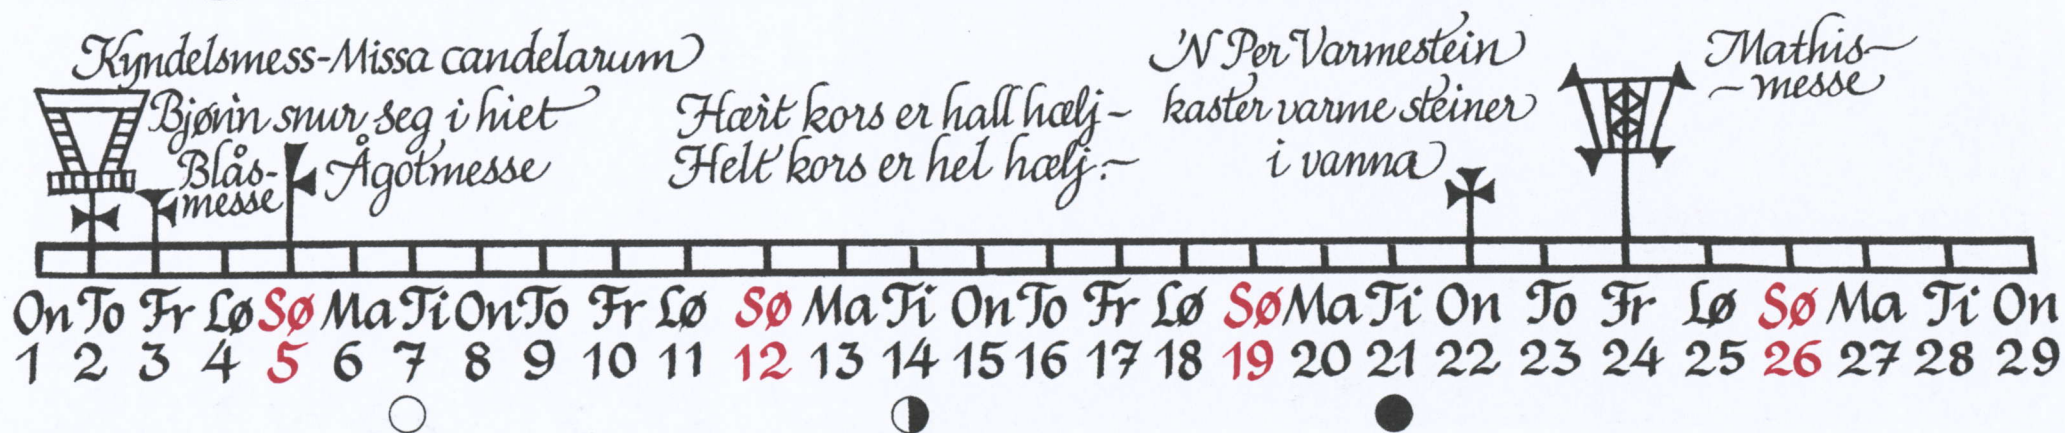 Kyndelsmess-Missa candelarum
Bjøinn snur seg i hiet
Blås-
messe
Ågotmesse
Hært kors er hall hælj~
Helt kors er hel hælj.~
'N Per Varmestein
kaster varme steiner
i vanna
Mathis~
~messe
On To Fr Lø Sø Ma Ti On To Fr Lø Sø Ma Ti On To Fr Lø Sø Ma Ti On To Fr Lø Sø Ma Ti On
1 2 3 4 5 6 7 8 9 10 11 12 13 14 15 16 17 18 19 20 21 22 23 24 25 26 27 28 29